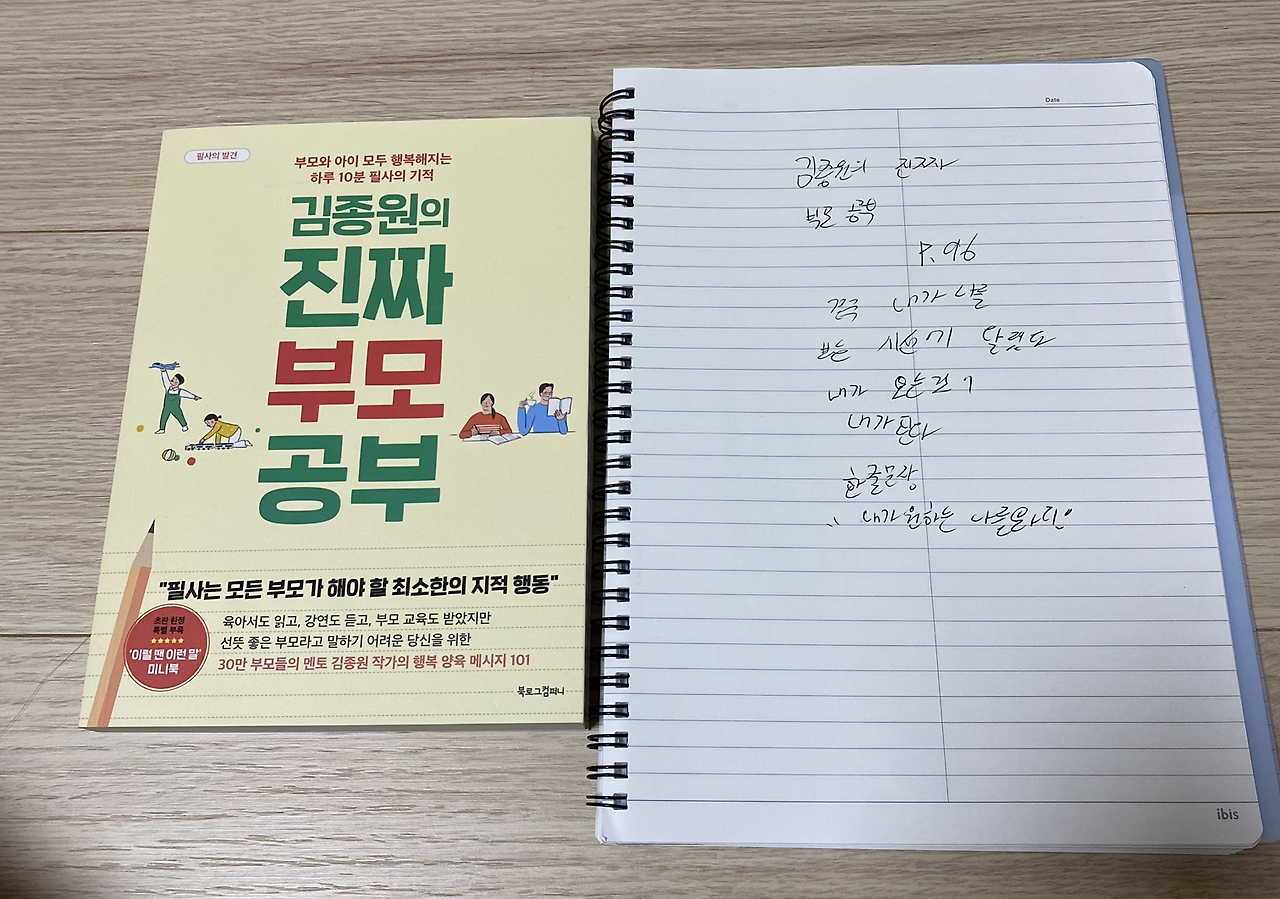 필사의 발견
부모와 아이 모두 행복해지는
하루 10분 필사의 기적
김종원의
진짜
부모
공부
"필사는 모든 부모가 해야 할 최소한의 지적 행동"
초판 한정
특별 부록
★★★★★
'이럴 땐 이런 말'
미니북
육아서도 읽고, 강연도 듣고, 부모 교육도 받았지만
선뜻 좋은 부모라고 말하기 어려운 당신을 위한
30만 부모들의 멘토 김종원 작가의 행복 양육 메시지 101
북로그컴퍼니
Date
김종원의 진짜
부모 공부
P. 96
결국 내가 나를
보는 시선이 달렸다
내가
내가 된다
한줄문장
" 내가 원하는 나를
ibis